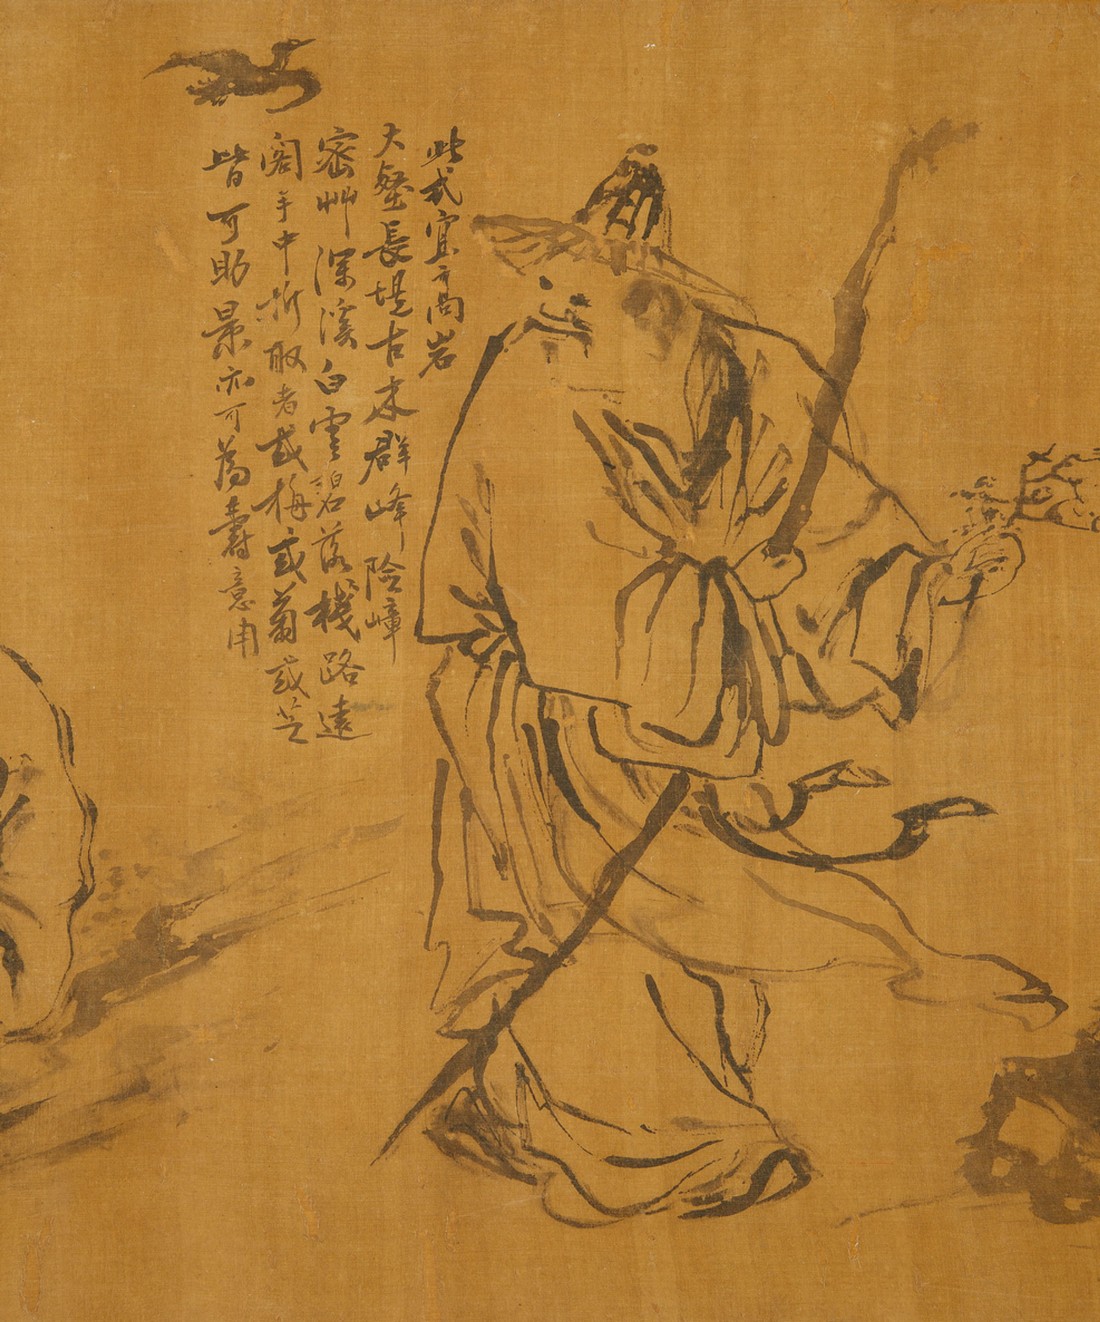 此式宜高岩
大壑長堤古木群峰險嶂
密艸深溪白雲碧落棧路遠
閣手中折取者或梅或菊或芝
皆可助景亦可為壽意用